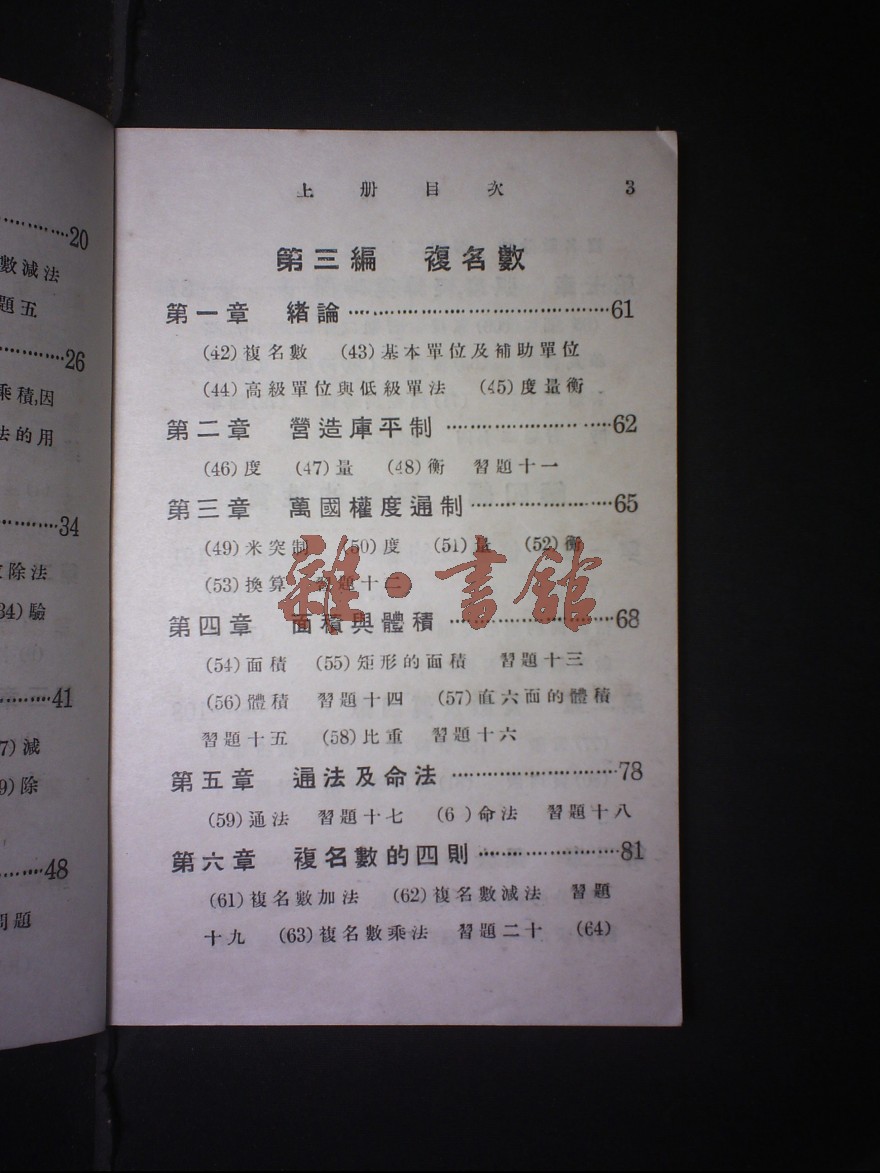 20
數減法
題五
26
乘積,因
法的用
34
除法
34)驗
41
7)減
9)除
48
問題
上册目次 3
第三編 複名數
第一章 緒論 61
(42)複名數 (43)基本單位及補助單位
(44)高級單位與低級單法 (45)度量衡
第二章 營造庫平制 62
(46)度 (47)量 (48)衡 習題十一
第三章 萬國權度通制 65
(49)米突制 (50)度 (51)量 (52)衡
(53)換算 習題十二
雜·書館
第四章 面積與體積 68
(54)面積 (55)矩形的面積 習題十三
(56)體積 習題十四 (57)直六面的體積
習題十五 (58)比重 習題十六
第五章 通法及命法 78
(59)通法 習題十七 (6 )命法 習題十八
第六章 複名數的四則 81
(61)複名數加法 (62)複名數減法 習題
十九 (63)複名數乘法 習題二十 (64)